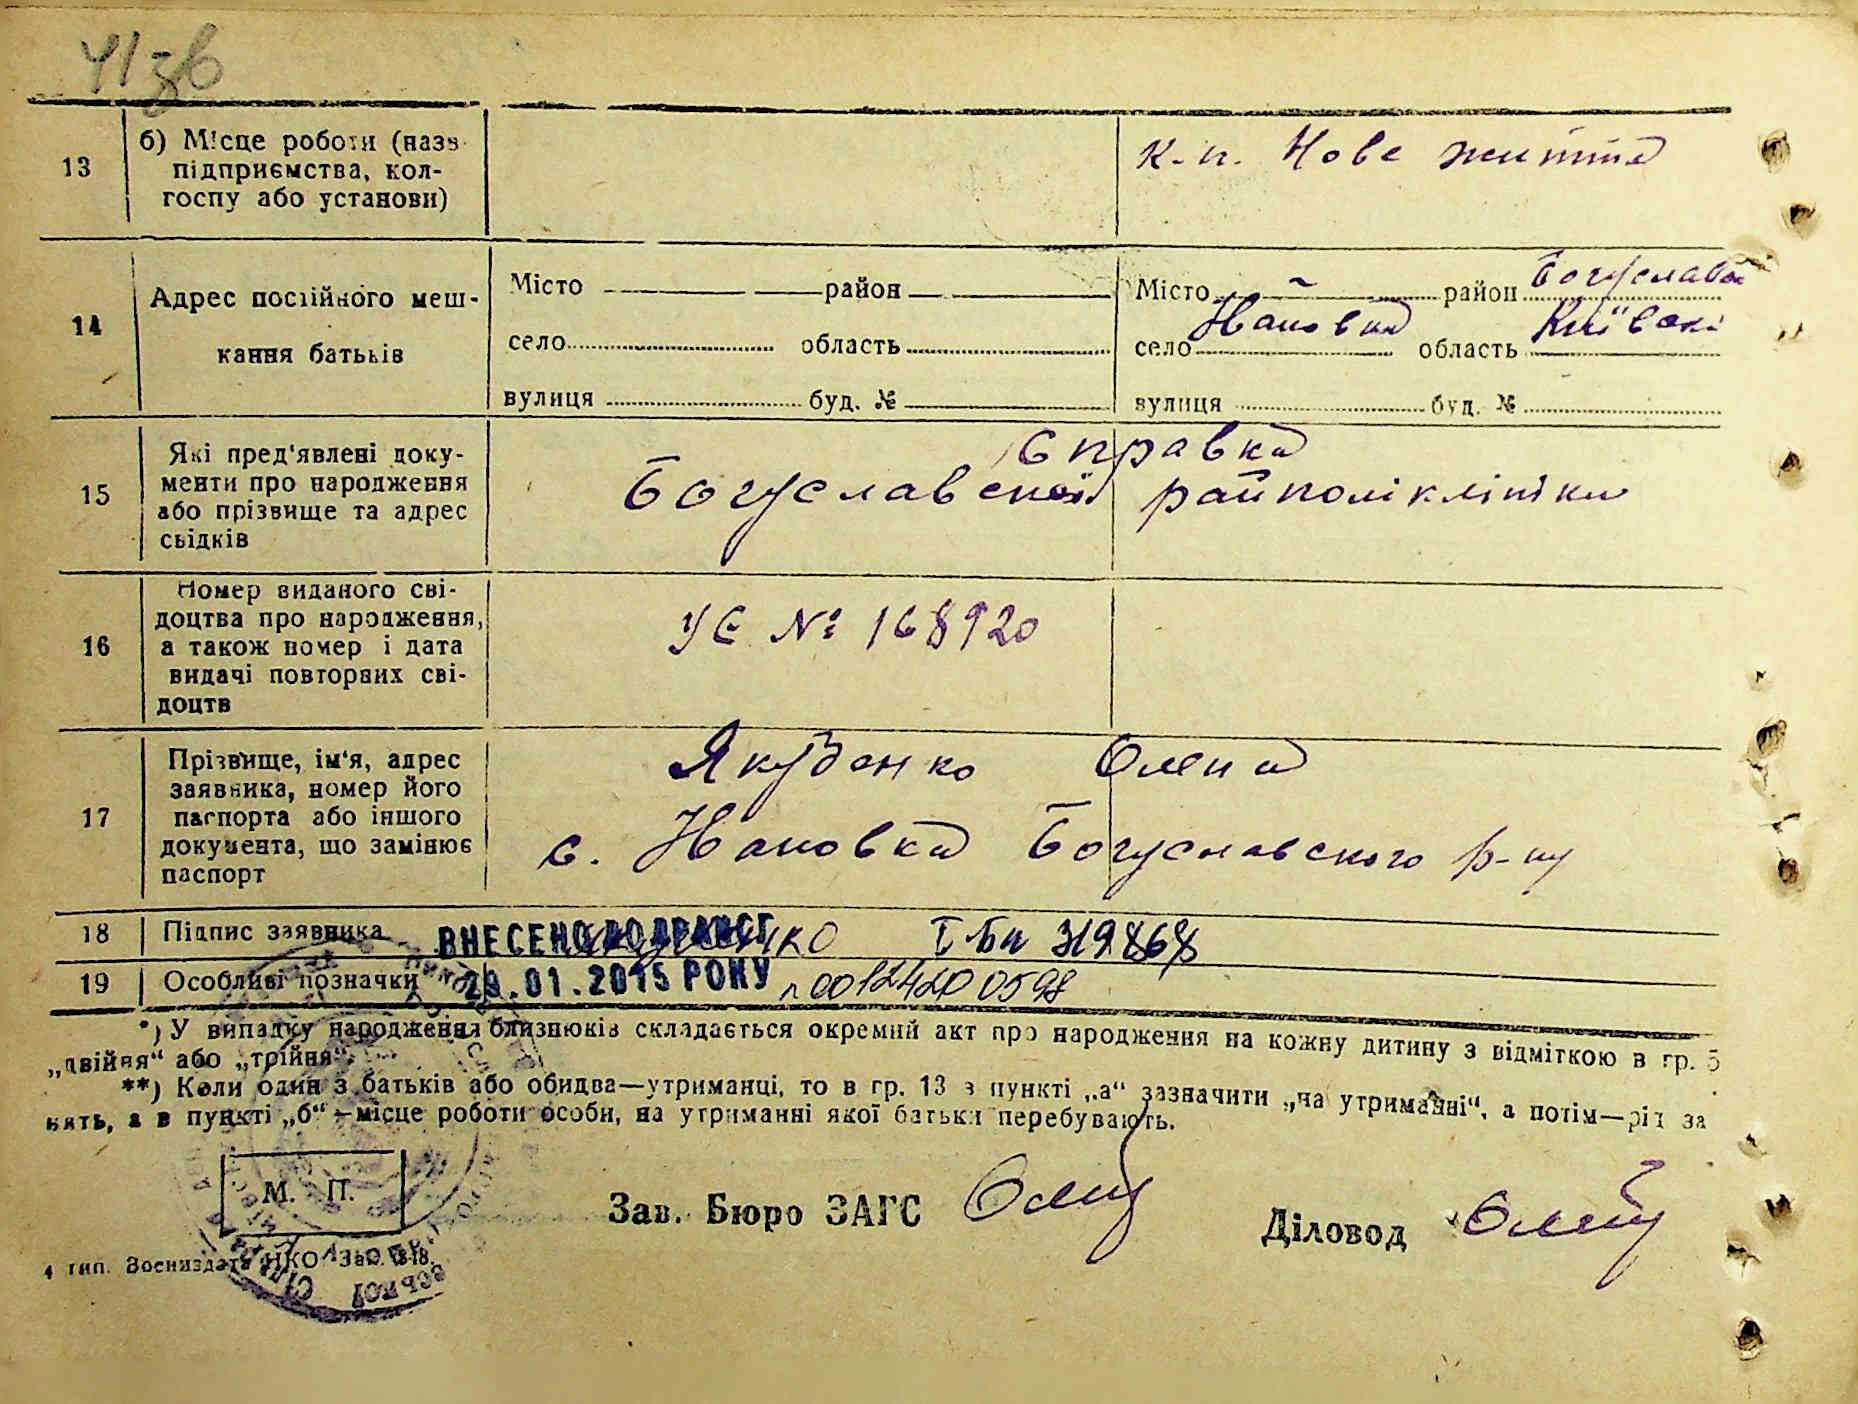 41зв
13
б) Місце роботи (назв
підприємства, кол-
госпу або установи)
к-п. Нове життя
14
Адрес постійного меш-
кання батьків
Місто район
село область
вулиця буд. №
Місто – район Богуслав
село область Київськ
вулиця буд. №
15
Які пред'явлені доку-
менти про народження
або прізвище та адрес
свідків
Справка
Богуславської райполіклініки
16
Номер виданого сві-
доцтва про народження,
а також номер і дата
видачі повторних сві-
доцтв
УЄ № 168920
17
Прізвище, ім'я, адрес
заявника, номер його
паспорта або іншого
документа, що замінює
паспорт
Якубенко Олена
с. Богуславского р-ну
18
Підпис заявника
ВНЕСЕНО ДО ДРАЦСГ
І-бк 319868
19
Особливі позначки
29.01.2015 РОКУ
00124200598
*) У випадку народження близнюків складається окремий акт про народження на кожну дитину з відміткою в гр. 5
„двійня“ або „трійня“.
**) Коли один з батьків або обидва—утриманці, то в гр. 13 в пункті „а“ зазначити „на утриманні“, а потім—рід за
нять, а в пункті „б“—місце роботи особи, на утриманні якої батьки перебувають.
М. П.
Зав. Бюро ЗАГС
Діловод
4 тип. Воениздата НКО Зак. 1818.